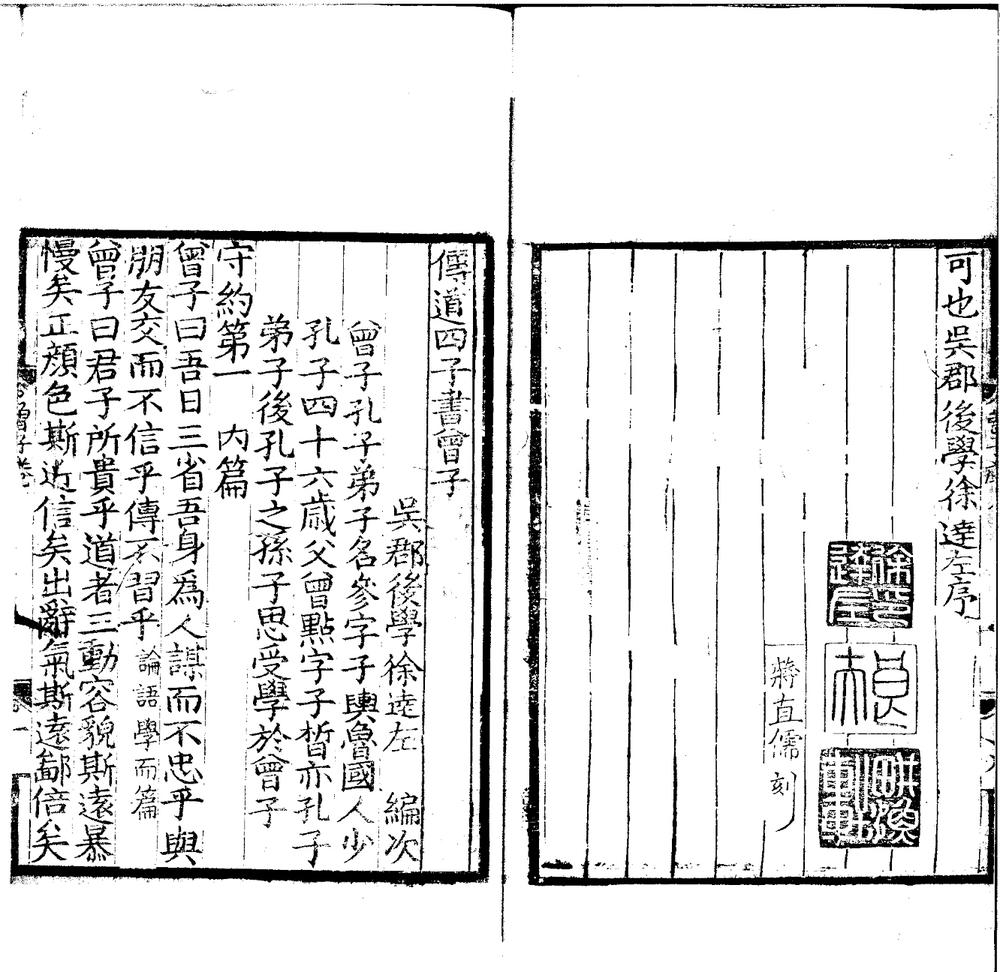 可也吳郡後學徐達左序
徐達左印
蔣直儒刻
傳道四子書曾子
吳郡後學徐達左 編次
曾子孔子弟子名參字子輿魯國人少
孔子四十六歲父曾點字子晳亦孔子
弟子後孔子之孫子思受學於曾子
守約第一 內篇
曾子曰吾日三省吾身爲人謀而不忠乎與
朋友交而不信乎傳不習乎論語學而篇
曾子曰君子所貴乎道者三動容貌斯遠暴
慢矣正顔色斯近信矣出辭氣斯遠鄙倍矣